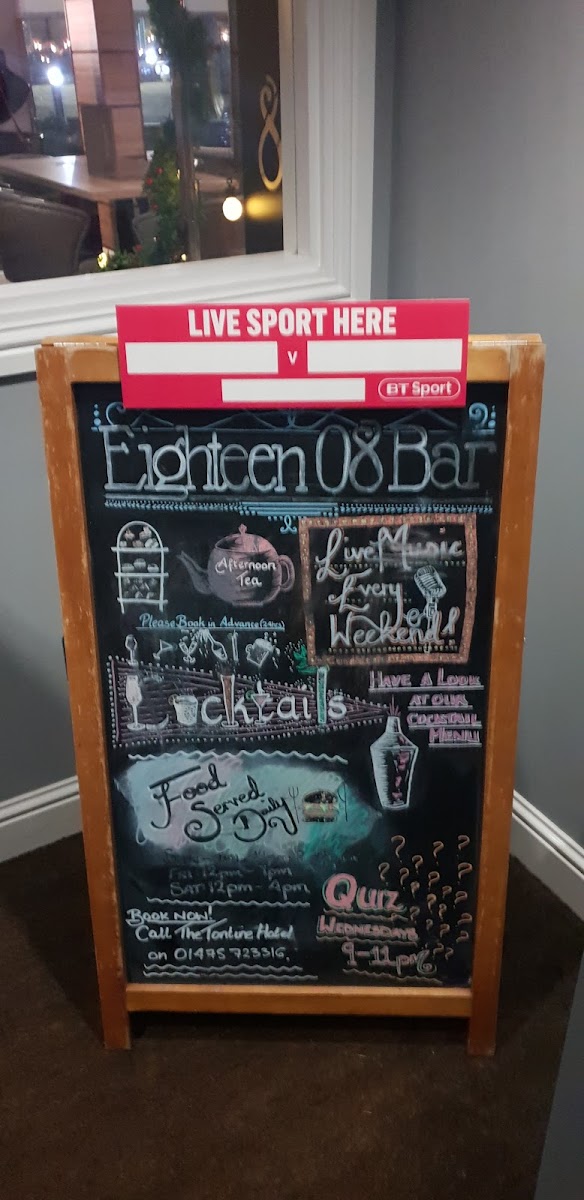 LIVE SPORT HERE
V
BT Sport
Eighteen 08 Bar
Afternoon
Tea
Please Book in Advance (24hrs)
Live Music
Every
Weekend!
Cocktails
HAVE A LOOK
AT OUR
COCKTAIL
MENU
Food
Served
Daily
FRI 12pm -
SAT 12pm - 4pm
BOOK NOW!
Call The Tontine Hotel
on 01475 723316.
Quiz
WEDNESDAYS
9-11pm
? ? ? ? ? ? ? ? ? ? ? ? ? ? ? ? ?
8